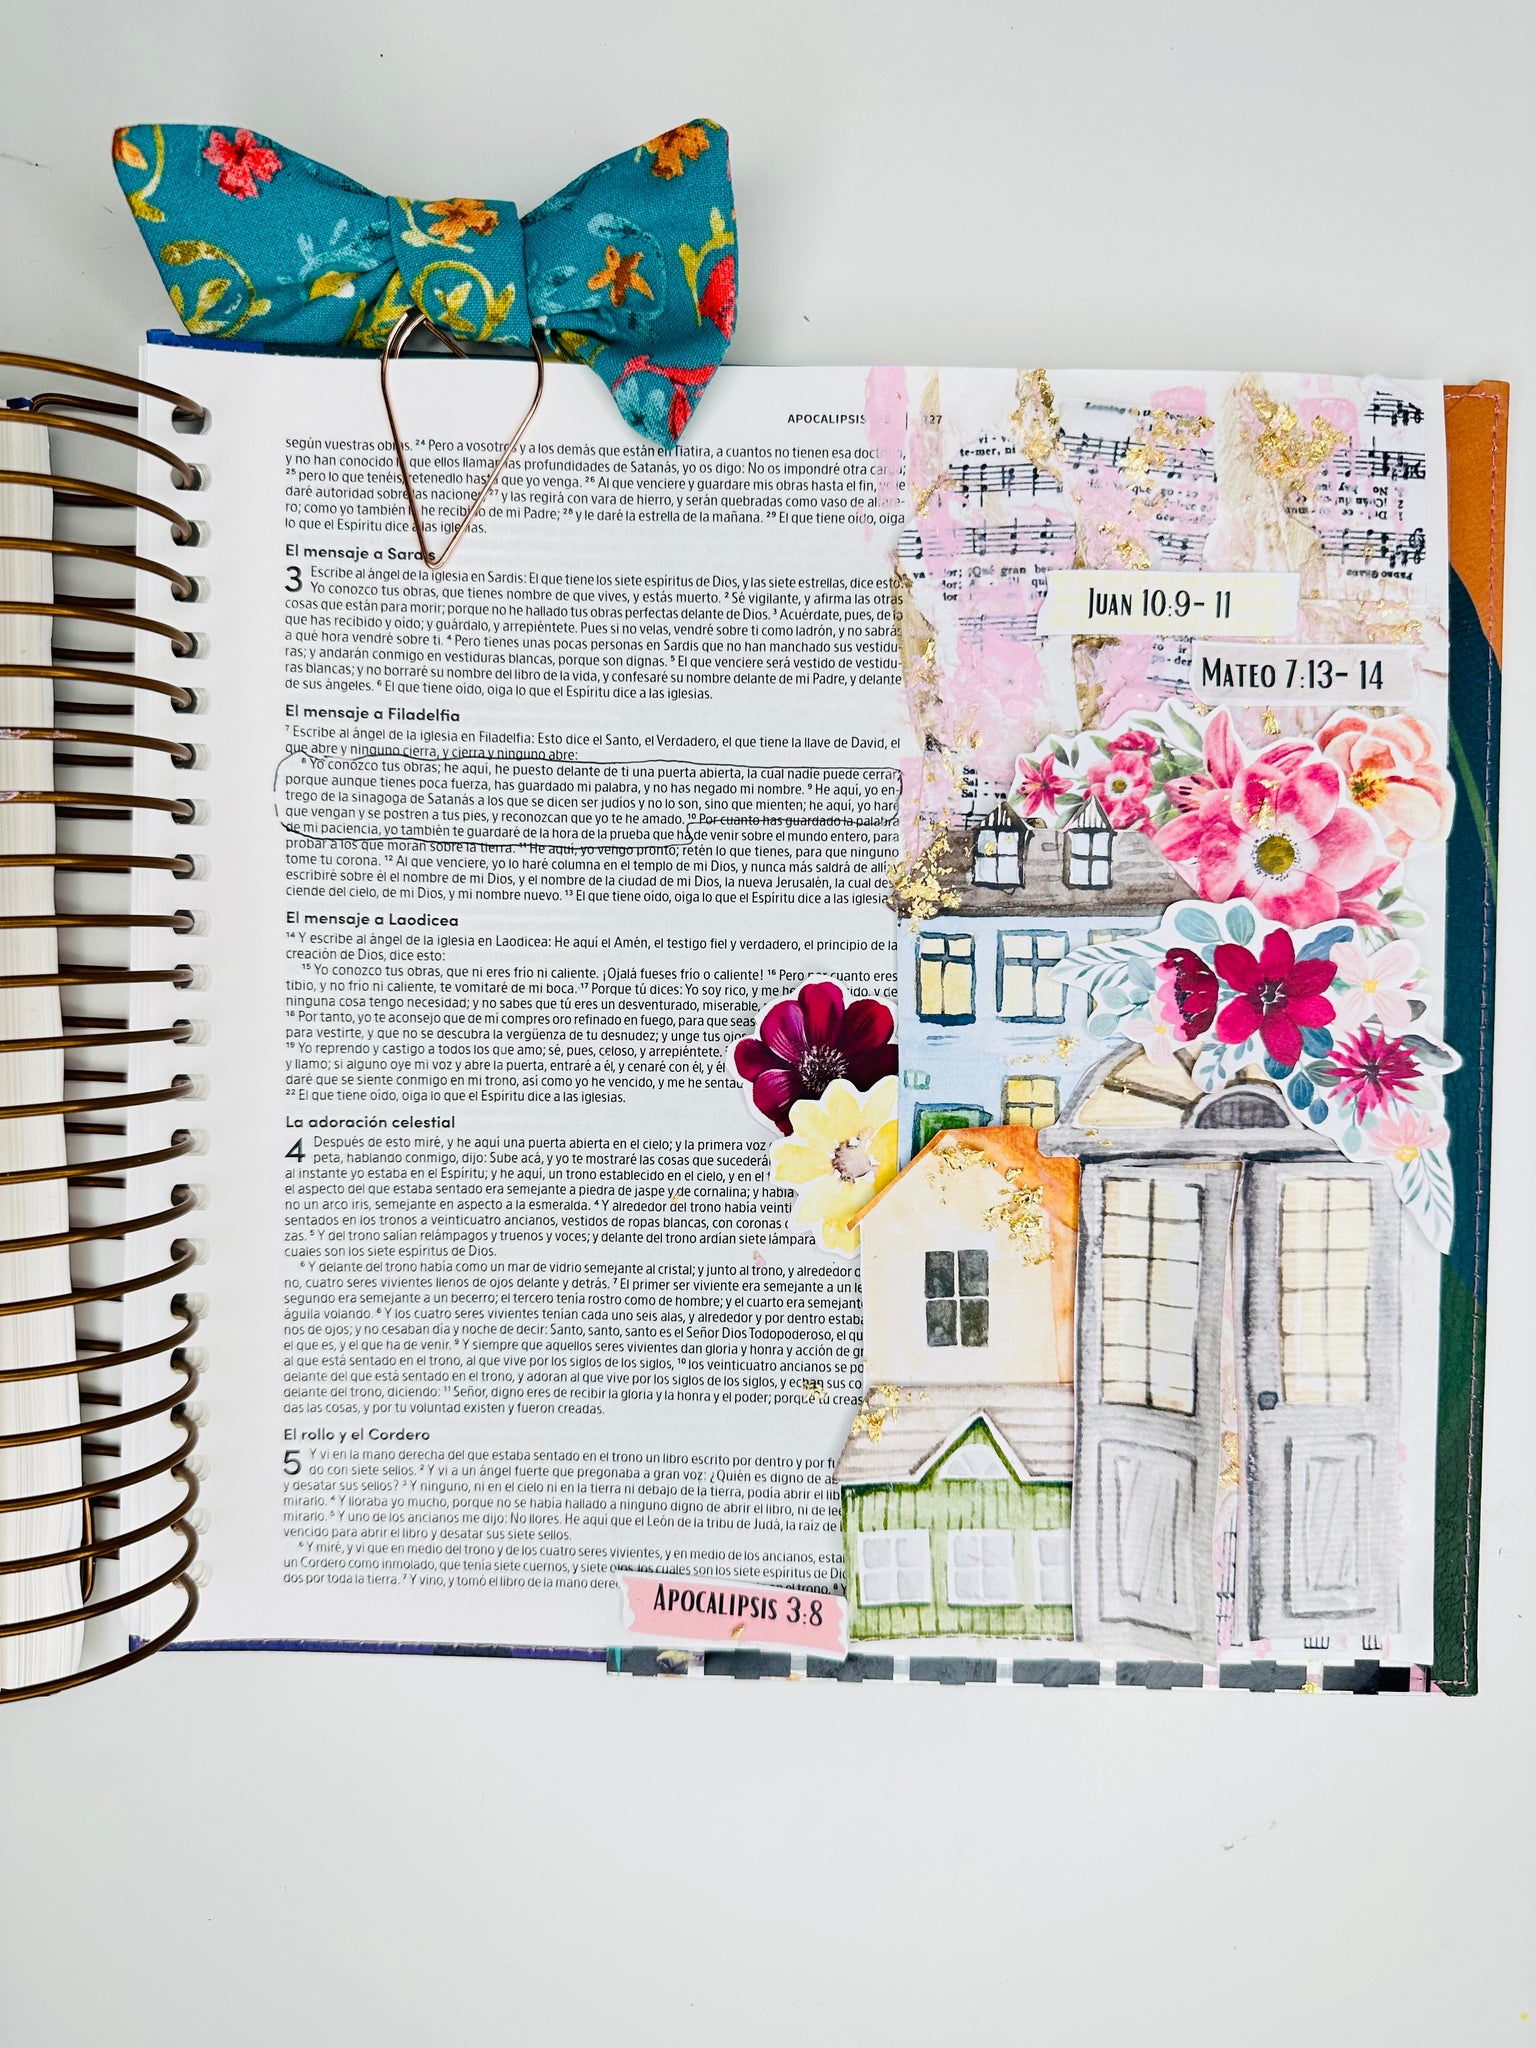 APOCALIPSIS
según vuestras obras. ²⁴ Pero a vosotros y a los demás que están en Tiatira, a cuantos no tienen esa doctrina,
y no han conocido lo que ellos llaman las profundidades de Satanás, yo os digo: No os impondré otra carga;
²⁵ pero lo que tenéis, retenedlo hasta que yo venga. ²⁶ Al que venciere y guardare mis obras hasta el fin, yo le
daré autoridad sobre las naciones, ²⁷ y las regirá con vara de hierro, y serán quebradas como vaso de alfare-
ro; como yo también la he recibido de mi Padre; ²⁸ y le daré la estrella de la mañana. ²⁹ El que tiene oído, oiga
lo que el Espíritu dice a las iglesias.
El mensaje a Sardis
3 Escribe al ángel de la iglesia en Sardis: El que tiene los siete espíritus de Dios, y las siete estrellas, dice esto:
Yo conozco tus obras, que tienes nombre de que vives, y estás muerto. ² Sé vigilante, y afirma las otras
cosas que están para morir; porque no he hallado tus obras perfectas delante de Dios. ³ Acuérdate, pues, de lo
que has recibido y oído; y guárdalo, y arrepiéntete. Pues si no velas, vendré sobre ti como ladrón, y no sabrás
a qué hora vendré sobre ti. ⁴ Pero tienes unas pocas personas en Sardis que no han manchado sus vestidu-
ras; y andarán conmigo en vestiduras blancas, porque son dignas. ⁵ El que venciere será vestido de vestidu-
ras blancas; y no borraré su nombre del libro de la vida, y confesaré su nombre delante de mi Padre, y delante
de sus ángeles. ⁶ El que tiene oído, oiga lo que el Espíritu dice a las iglesias.
El mensaje a Filadelfia
⁷ Escribe al ángel de la iglesia en Filadelfia: Esto dice el Santo, el Verdadero, el que tiene la llave de David, el
que abre y ninguno cierra, y cierra y ninguno abre:
⁸ Yo conozco tus obras; he aquí, he puesto delante de ti una puerta abierta, la cual nadie puede cerrar;
porque aunque tienes poca fuerza, has guardado mi palabra, y no has negado mi nombre. ⁹ He aquí, yo en-
trego de la sinagoga de Satanás a los que se dicen ser judíos y no lo son, sino que mienten; he aquí, yo haré
que vengan y se postren a tus pies, y reconozcan que yo te he amado. ¹⁰ Por cuanto has guardado la palabra
de mi paciencia, yo también te guardaré de la hora de la prueba que ha de venir sobre el mundo entero, para
probar a los que moran sobre la tierra. ¹¹ He aquí, yo vengo pronto; retén lo que tienes, para que ninguno
tome tu corona. ¹² Al que venciere, yo lo haré columna en el templo de mi Dios, y nunca más saldrá de allí;
escribiré sobre él el nombre de mi Dios, y el nombre de la ciudad de mi Dios, la nueva Jerusalén, la cual des-
ciende del cielo, de mi Dios, y mi nombre nuevo. ¹³ El que tiene oído, oiga lo que el Espíritu dice a las iglesias.
El mensaje a Laodicea
¹⁴ Y escribe al ángel de la iglesia en Laodicea: He aquí el Amén, el testigo fiel y verdadero, el principio de la
creación de Dios, dice esto:
¹⁵ Yo conozco tus obras, que ni eres frío ni caliente. ¡Ojalá fueses frío o caliente! ¹⁶ Pero por cuanto eres
tibio, y no frío ni caliente, te vomitaré de mi boca. ¹⁷ Porque tú dices: Yo soy rico, y me he
ninguna cosa tengo necesidad; y no sabes que tú eres un desventurado, miserable,
¹⁸ Por tanto, yo te aconsejo que de mí compres oro refinado en fuego, para que seas
para vestirte, y que no se descubra la vergüenza de tu desnudez; y unge tus ojos
¹⁹ Yo reprendo y castigo a todos los que amo; sé, pues, celoso, y arrepiéntete.
y llamo; si alguno oye mi voz y abre la puerta, entraré a él, y cenaré con él, y él
daré que se siente conmigo en mi trono, así como yo he vencido, y me he sentad
²² El que tiene oído, oiga lo que el Espíritu dice a las iglesias.
La adoración celestial
4 Después de esto miré, y he aquí una puerta abierta en el cielo; y la primera voz
peta, hablando conmigo, dijo: Sube acá, y yo te mostraré las cosas que sucederá
al instante yo estaba en el Espíritu; y he aquí, un trono establecido en el cielo, y en el
el aspecto del que estaba sentado era semejante a piedra de jaspe y de cornalina; y había
no un arco iris, semejante en aspecto a la esmeralda. ⁴ Y alrededor del trono había veinti
sentados en los tronos a veinticuatro ancianos, vestidos de ropas blancas, con coronas
zas. ⁵ Y del trono salían relámpagos y truenos y voces; y delante del trono ardían siete lámpara
cuales son los siete espíritus de Dios.
⁶ Y delante del trono había como un mar de vidrio semejante al cristal; y junto al trono, y alrededor
no, cuatro seres vivientes llenos de ojos delante y detrás. ⁷ El primer ser viviente era semejante a un le
segundo era semejante a un becerro; el tercero tenía rostro como de hombre; y el cuarto era semejante
águila volando. ⁸ Y los cuatro seres vivientes tenían cada uno seis alas, y alrededor y por dentro estaba
nos de ojos; y no cesaban día y noche de decir: Santo, santo, santo es el Señor Dios Todopoderoso, el qu
el que es, y el que ha de venir. ⁹ Y siempre que aquellos seres vivientes dan gloria y honra y acción de gr
al que está sentado en el trono, al que vive por los siglos de los siglos, ¹⁰ los veinticuatro ancianos se po
delante del que está sentado en el trono, y adoran al que vive por los siglos de los siglos, y echan sus co
delante del trono, diciendo: ¹¹ Señor, digno eres de recibir la gloria y la honra y el poder; porque tú creas
das las cosas, y por tu voluntad existen y fueron creadas.
El rollo y el Cordero
5 Y vi en la mano derecha del que estaba sentado en el trono un libro escrito por dentro y por fu
do con siete sellos. ² Y vi a un ángel fuerte que pregonaba a gran voz: ¿Quién es digno de ab
y desatar sus sellos? ³ Y ninguno, ni en el cielo ni en la tierra ni debajo de la tierra, podía abrir el lib
mirarlo. ⁴ Y lloraba yo mucho, porque no se había hallado a ninguno digno de abrir el libro, ni de le
mirarlo. ⁵ Y uno de los ancianos me dijo: No llores. He aquí que el León de la tribu de Judá, la raíz de
vencido para abrir el libro y desatar sus siete sellos.
⁶ Y miré, y vi que en medio del trono y de los cuatro seres vivientes, y en medio de los ancianos, esta
un Cordero como inmolado, que tenía siete cuernos, y siete ojos, los cuales son los siete espíritus de Di
dos por toda la tierra. ⁷ Y vino, y tomó el libro de la mano dere
Juan 10:9- 11
Mateo 7:13- 14
Apocalipsis 3:8